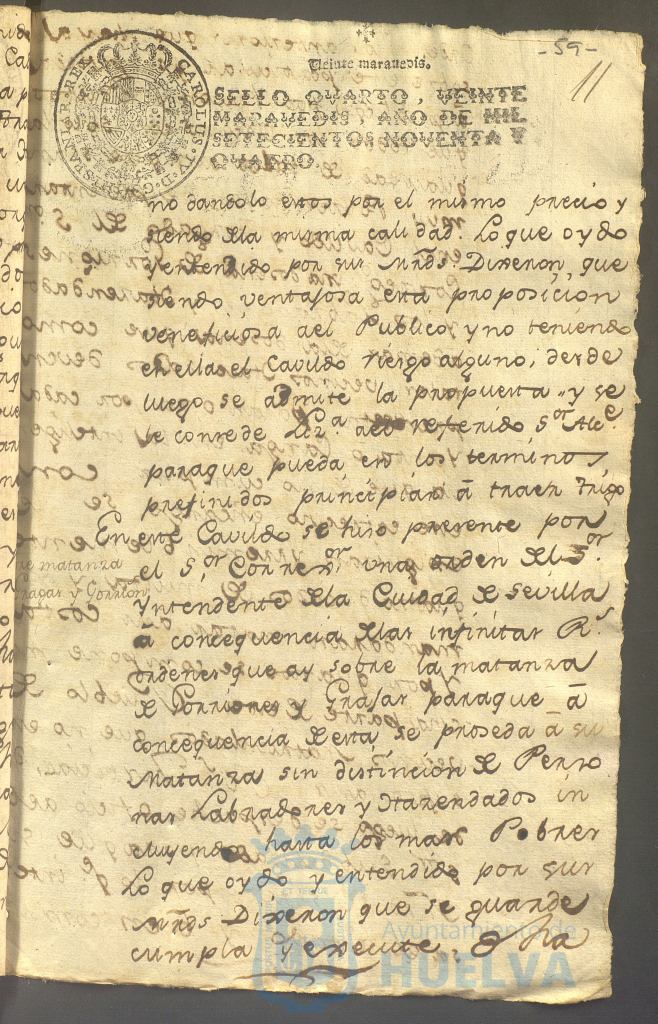 - 59 -
11
Veinte maravedis.
CAROLUS IV D. G. HISPANIAR. REX
SELLO QVARTO, VEINTE
MARAVEDIS, AÑO DE MIL
SETECIENTOS NOVENTA Y
QVATRO.
no dandolo estos por el mismo precio y
siendo dela misma calidad. Lo que oydo
y entendido por sus Mrds. Dixeron, que
siendo ventajosa esta proposición
veneficiosa ael Publico y no teniendo
en ella el Cavildo riesgo alguno, desde
luego se admite la propuesta y se
le concede Liz.a ael referido S.or Alc.e
paraque pueda en los terminos
prefinidos principiar â traer trigo
En este Cavildo se hiso presente por
el S.or Corre.or una orden del S.or
Yntendente dela Ciudad de Sevilla
â concequencia delas infinitas R.s
ordenes que ay sobre la matanza
de Gorriones y Grajas paraque â
concequencia de esta se proseda â su
Matanza sin distinción de Perso
nas Labradores y Hazendados in
cluyendo hasta los mas Pobres
Lo que oydo y entendido por sus
Mrds Dixeron que se guarde
cumpla y execute. &
re matanza
Grajas y Gorrion
Ayuntamiento de
HUELVA